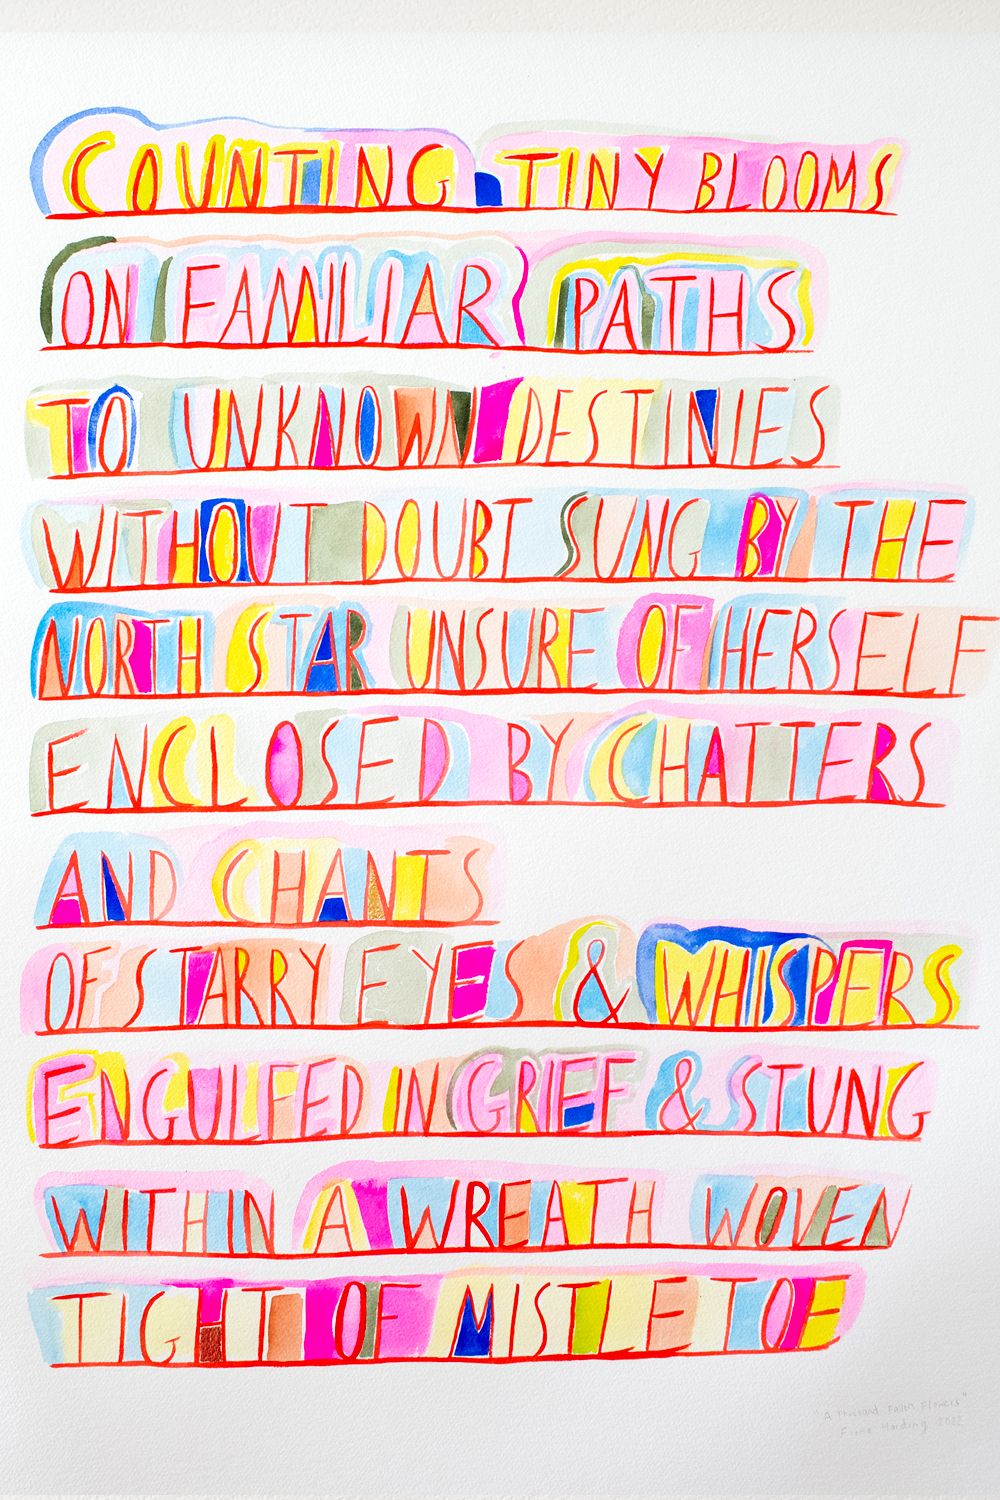 COUNTING TINY BLOOMS
ON FAMILIAR PATHS
TO UNKNOWN DESTINIES
WITHOUT DOUBT SUNG BY THE
NORTH STAR UNSURE OF HERSELF
ENCLOSED BY CHATTERS
AND CHANTS
OF STARRY EYES & WHISPERS
ENGULFED IN GRIEF & STUNG
WITHIN A WREATH WOVEN
TIGHT OF MISTLETOE
"A Thousand Fallen Flowers"
Fiona Harding 2022